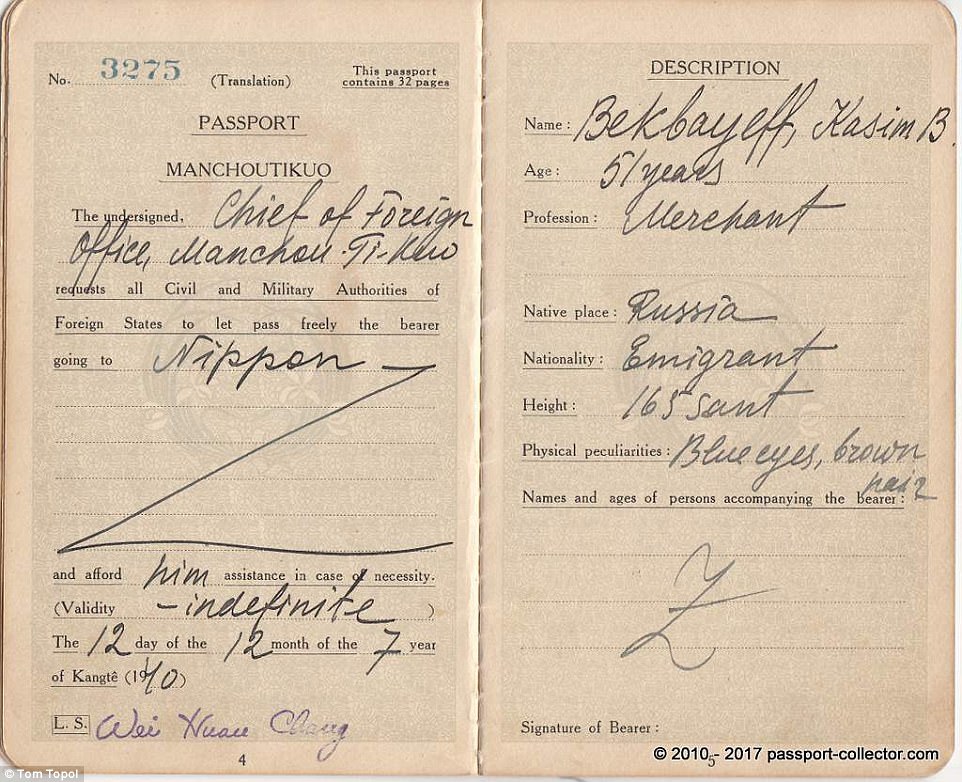 No. 3275 (Translation) This passport
contains 32 pages
PASSPORT
MANCHOUTIKUO
The undersigned, Chief of Foreign
Office, Manchou-Ti-Kuo
requests all Civil and Military Authorities of
Foreign States to let pass freely the bearer
going to Nippon —
and afford him assistance in case of necessity.
(Validity - indefinite )
The 12 day of the 12 month of the 7 year
of Kangtê (1940)
L. S. Wei Huan Chang
4
© Tom Topol
DESCRIPTION
Name : Bekbayeff, Kasim B.
Age : 51 years
Profession : Merchant
Native place : Russia
Nationality : Emigrant
Height : 165 sant
Physical peculiarities : Blue eyes, brown
hair
Names and ages of persons accompanying the bearer :
Z
Signature of Bearer :
© 2010 - 2017 passport-collector.com
5